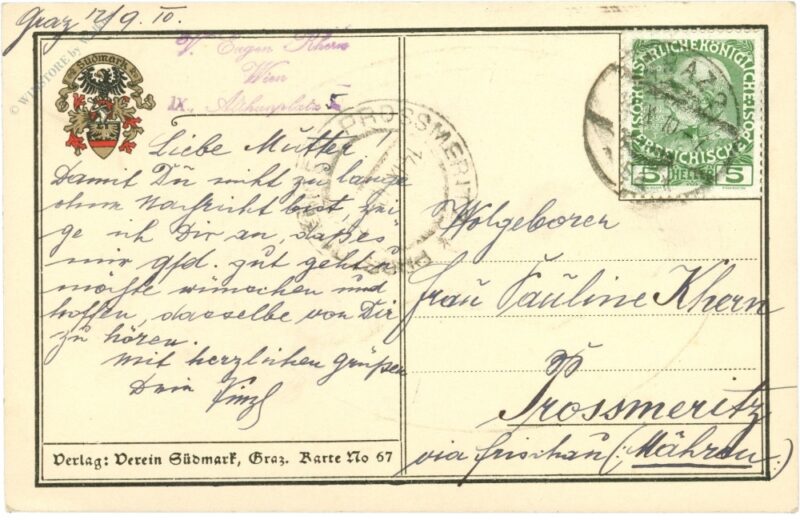 Graz 12/9. 10.
Südmark
V. Eugen Khern
Wien
IX., Althanplatz 5
Liebe Mutter
Damit Du nicht zu lange
ohne Nachricht bist, zei-
ge ich Dir an, daß es
mir gfd. gut geht u
möchte wünschen und
hoffen, dasselbe von Dir
zu hören.
Mit herzlichen Grüßen
Dein Vinzl
Verlag: Verein Südmark, Graz. Karte No 67
PROSSMERITZ
GRAZ
KAISERLICHE KÖNIGLICHE
ÖSTERREICHISCHE
5 HELLER 5
Wolgeboren
Frau Pauline Khern
Prossmeritz
via Frischau (Mähren)